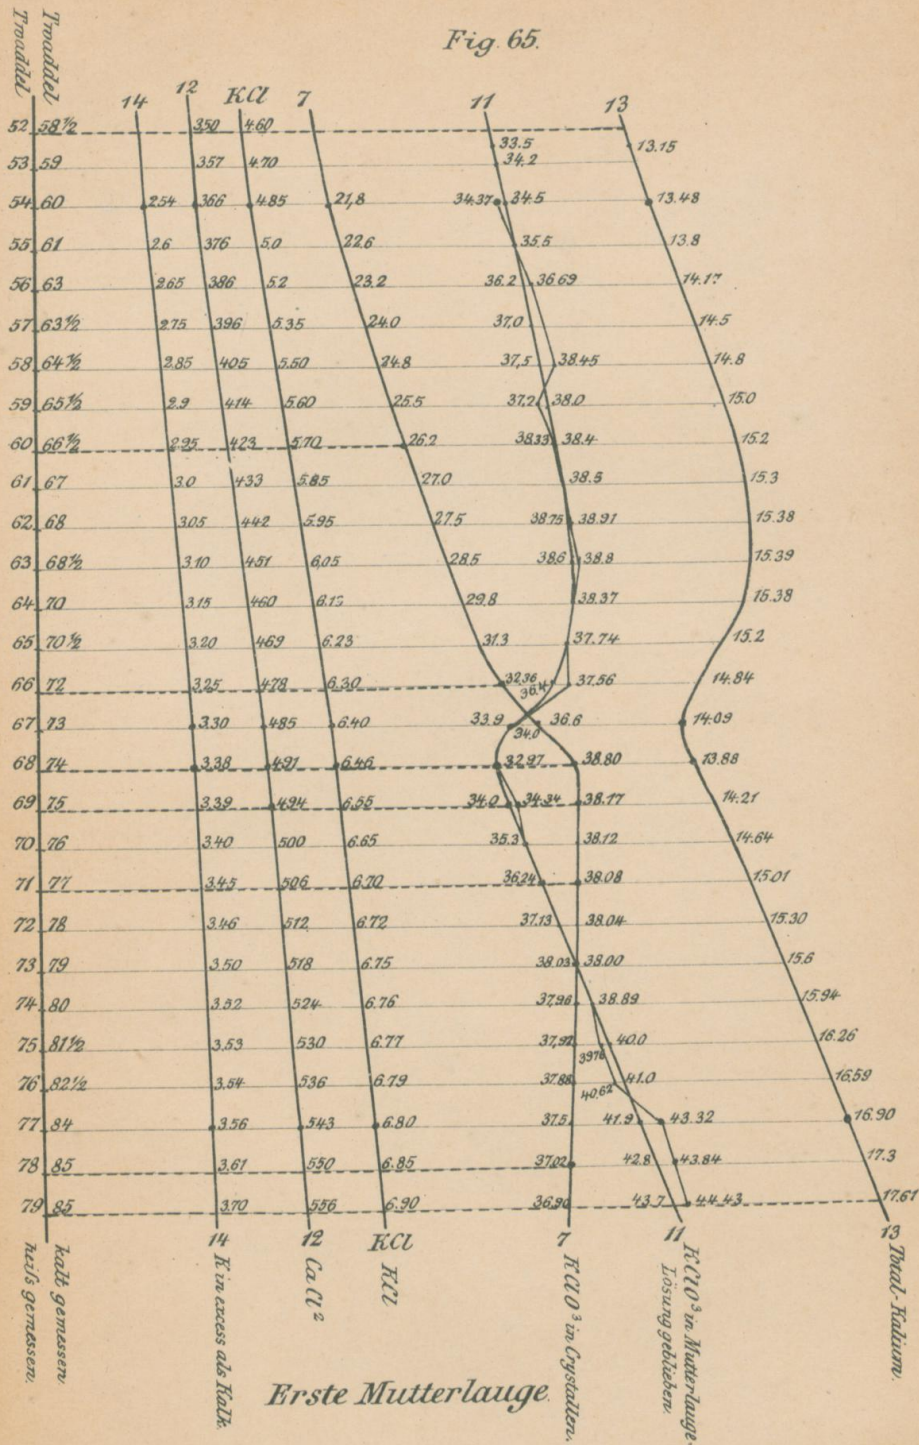 Fig. 65.
Twaddel Twaddel
14 12 KCl 7 11 13
52 58½ 350 4.60
33.5 13.15
53 59 357 4.70 34.2
54 60 2.54 366 4.85 21,8 34.37 34.5 13.48
55 61 2.6 376 5.0 22.6 35.5 13.8
56 63 2.65 386 5.2 23.2 36.2 36.69 14.17
57 63½ 2.75 396 5.35 24.0 37,0 14.5
58 64½ 2.85 405 5.50 24.8 37,5 38.45 14.8
59 65½ 2.9 414 5.60 25.5 37.2 38.0 15.0
60 66½ 2.95 423 5.70 26.2 38.33 38.4 15.2
61 67 3.0 433 5.85 27.0 38.5 15.3
62 68 3.05 442 5.95 27.5 38.75 38.91 15.38
63 68½ 3.10 451 6,05 28.5 38.6 38.8 15.39
64 70 3.15 460 29.8 38.37 15.38
65 70½ 3.20 469 6.23 31.3 37.74 15.2
66 72 3.25 478 6.30 32.36 37.56 14.84
67 73 3.30 485 6.40 33.9 34.0 36.6 14.09
68 74 3.38 491 6.46 32.97 38.80 13.88
69 75 3.39 494 6.55 34.0 34.34 38.17 14.21
70 76 3.40 500 6.65 35.3 38.12 14.64
71 77 3.45 506 6.70 36.24 38.08 15.01
72 78 3.46 512 6.72 37.13 38.04 15.30
73 79 3.50 518 6.75 38.03 38.00 15.6
74 80 3.52 524 6.76 37.96 38.89 15.94
75 81½ 3.53 530 6.77 37,92 39.76 40.0 16.26
76 82½ 3.54 536 6.79 37.88 40.62 41.0 16.59
77 84 3.56 543 6.80 37.5 41.9 43.32 16.90
78 85 3.61 550 6.85 37.02 42.8 43.84 17.3
79 85 3.70 556 6.90 36.90 43.7 44.43 17.61
14 12 KCl 7 11 13
heiſs gemessen.
kalt gemessen
K in excess als Kalk.
Ca Cl²
KCl
K ClO³ in Crystallen.
K ClO³ in Mutterlauge
Lösung geblieben.
Total-Kalium.
Erste Mutterlauge